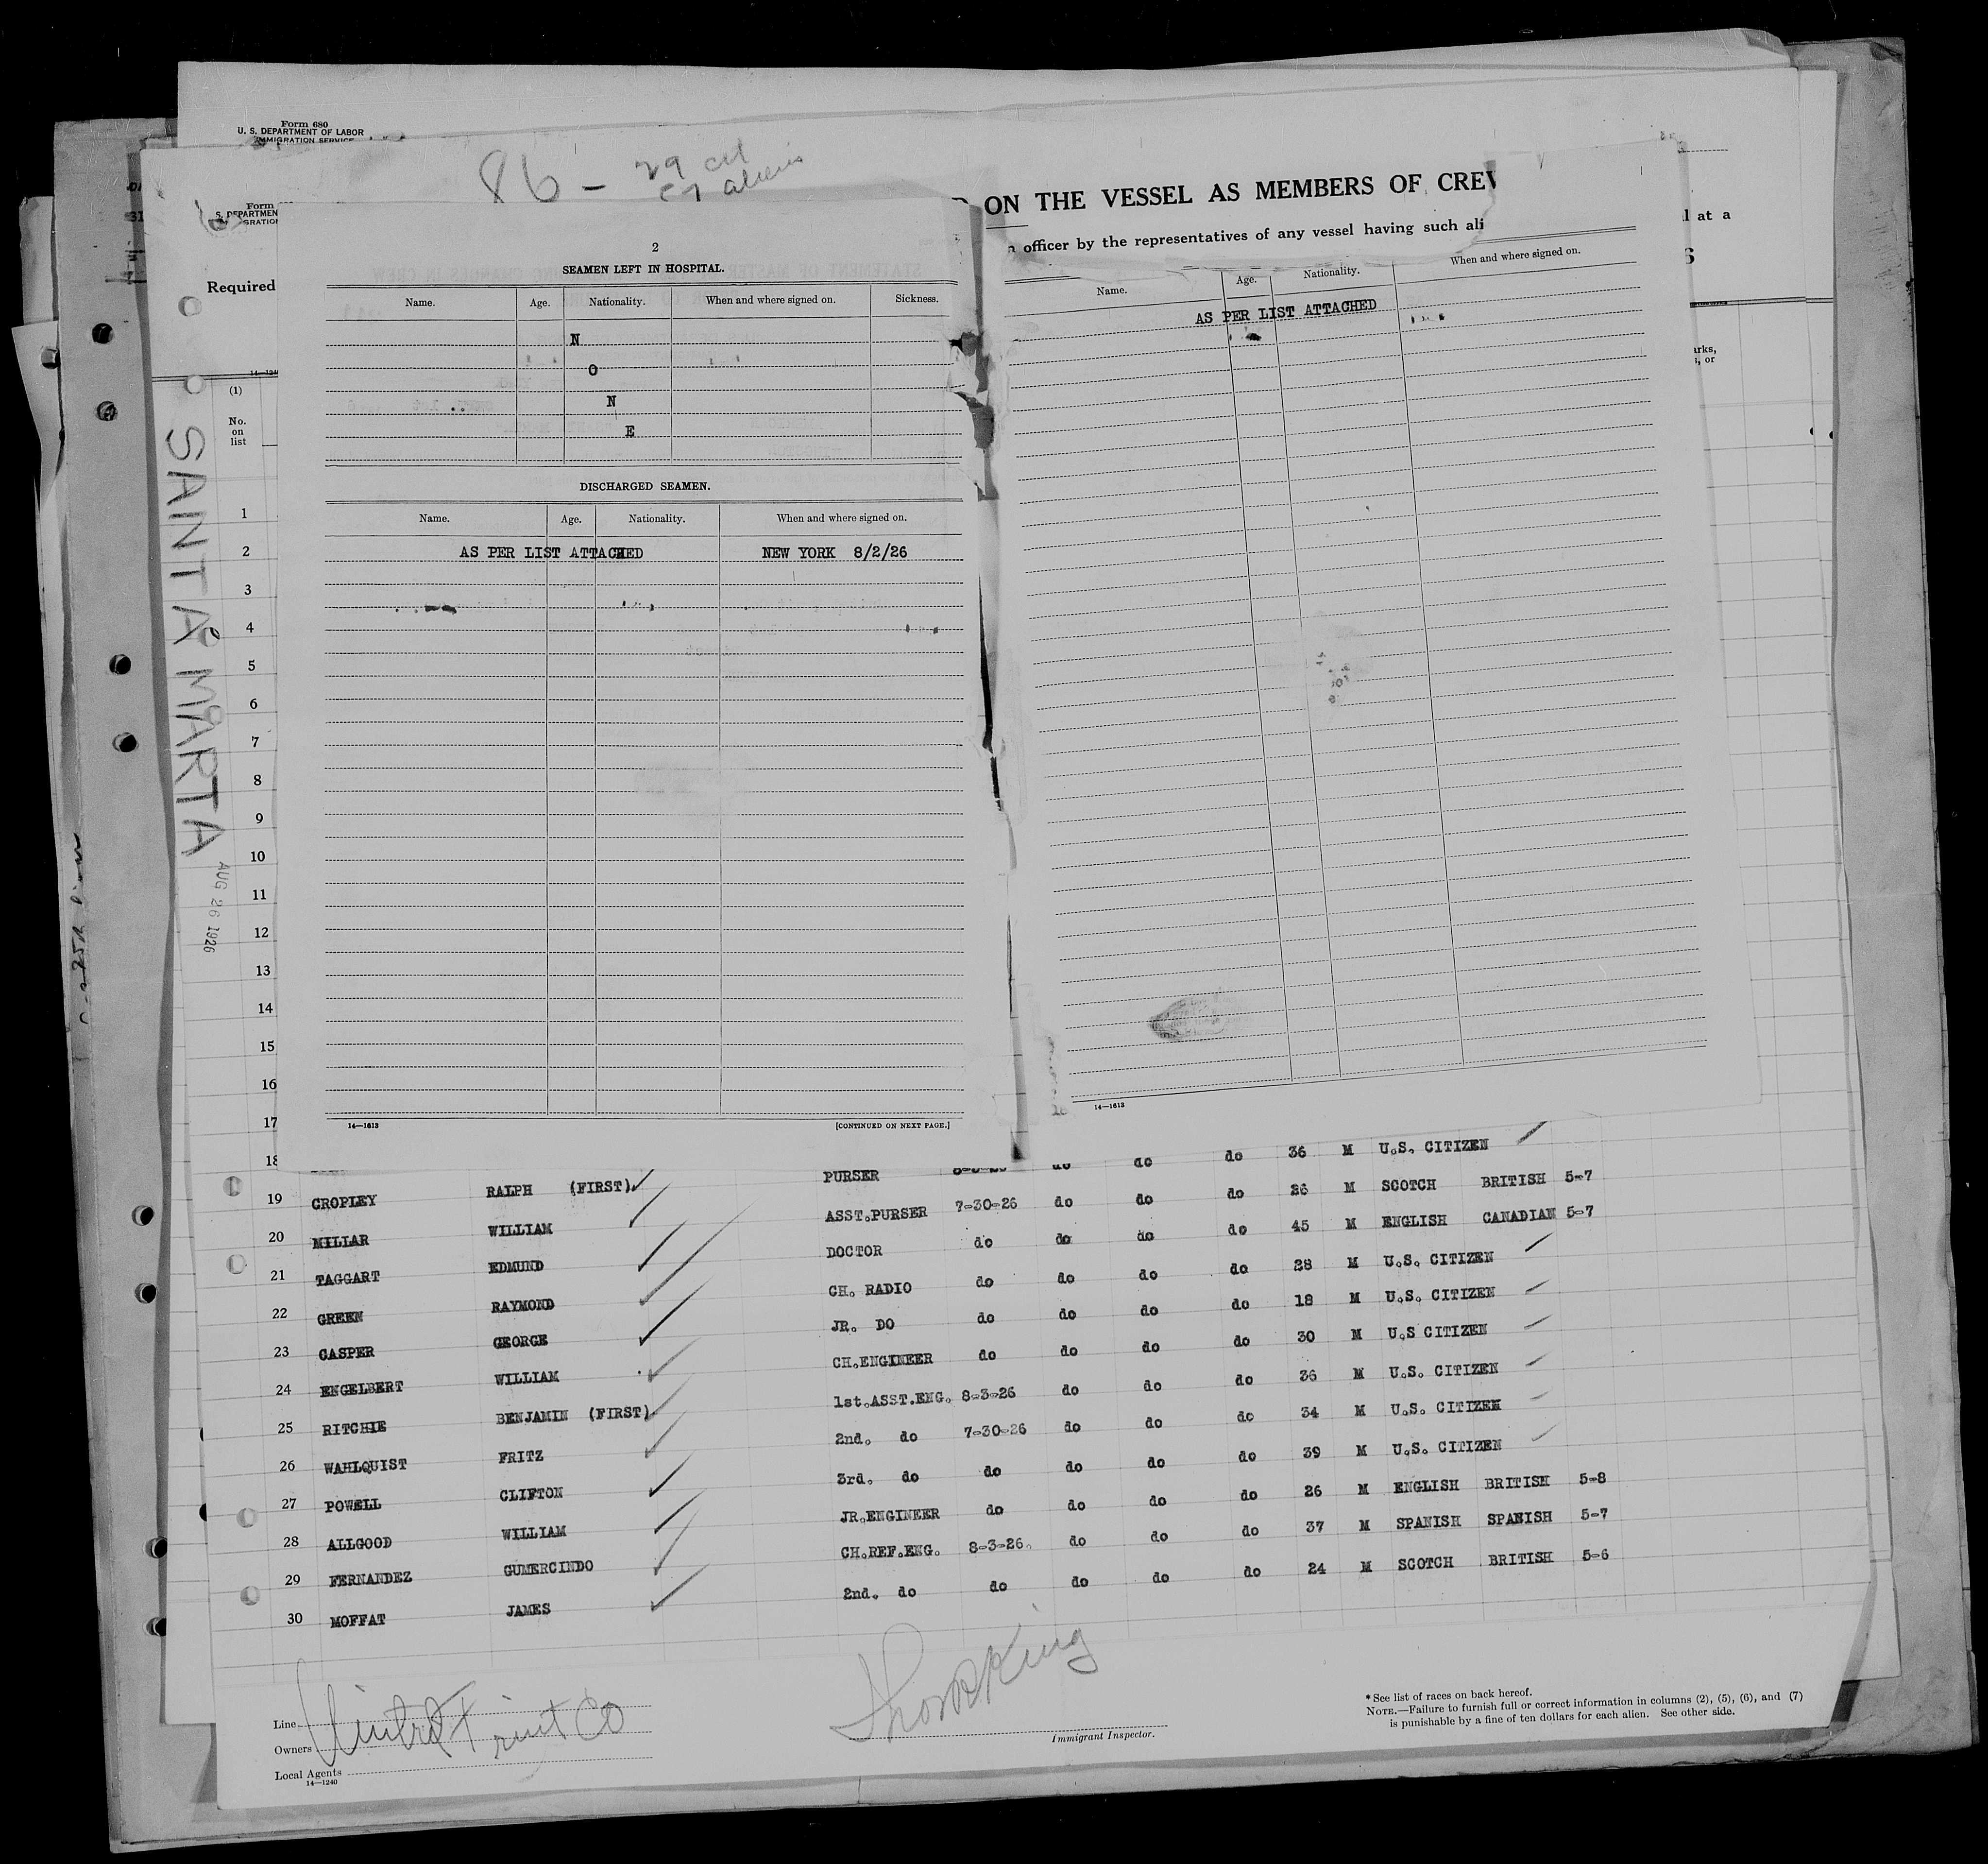 Form 680
U. S. DEPARTMENT OF LABOR
IMMIGRATION SERVICE
86 - 29 cit
57 aliens
Form
S. DEPARTMEN
GRATION
Required
14—1240
(1)
No.
on
list
SANTA MARTA
AUG 26 1926
2
SEAMEN LEFT IN HOSPITAL.
Name. Age. Nationality. When and where signed on. Sickness.
N
O
N
E
DISCHARGED SEAMEN.
Name. Age. Nationality. When and where signed on.
AS PER LIST ATTACHED NEW YORK 8/2/26
14—1613 [CONTINUED ON NEXT PAGE.]
ON THE VESSEL AS MEMBERS OF CREW
officer by the representatives of any vessel having such ali
l at a
Name. Age. Nationality. When and where signed on.
AS PER LIST ATTACHED
arks,
, or
14—1613
1
2
3
4
5
6
7
8
9
10
11
12
13
14
15
16
17
18
19 CROPLEY RALPH (FIRST) PURSER do do do 36 M U.S. CITIZEN
20 MILLAR WILLIAM ASST.PURSER 7-30-26 do do do 26 M SCOTCH BRITISH 5-7
21 TAGGART EDMUND DOCTOR do do do do 45 M ENGLISH CANADIAN 5-7
22 GREEN RAYMOND CH. RADIO do do do do 28 M U.S. CITIZEN
23 CASPER GEORGE JR. DO do do do do 18 M U.S. CITIZEN
24 ENGELBERT WILLIAM CH.ENGINEER do do do do 30 M U.S CITIZEN
25 RITCHIE BENJAMIN (FIRST) 1st.ASST.ENG. 8-3-26 do do do 36 M U.S. CITIZEN
26 WAHLQUIST FRITZ 2nd. do 7-30-26 do do do 34 M U.S. CITIZEN
27 POWELL CLIFTON 3rd. do do do do do 39 M U.S. CITIZEN
28 ALLGOOD WILLIAM JR.ENGINEER do do do do 26 M ENGLISH BRITISH 5-8
29 FERNANDEZ GUMERCINDO CH.REF.ENG. 8-3-26. do do do 37 M SPANISH SPANISH 5-7
30 MOFFAT JAMES 2nd. do do do do do 24 M SCOTCH BRITISH 5-6
Line
Owners United Fruit Co
Local Agents
14—1240
Immigrant Inspector.
* See list of races on back hereof.
NOTE.—Failure to furnish full or correct information in columns (2), (5), (6), and (7)
is punishable by a fine of ten dollars for each alien. See other side.